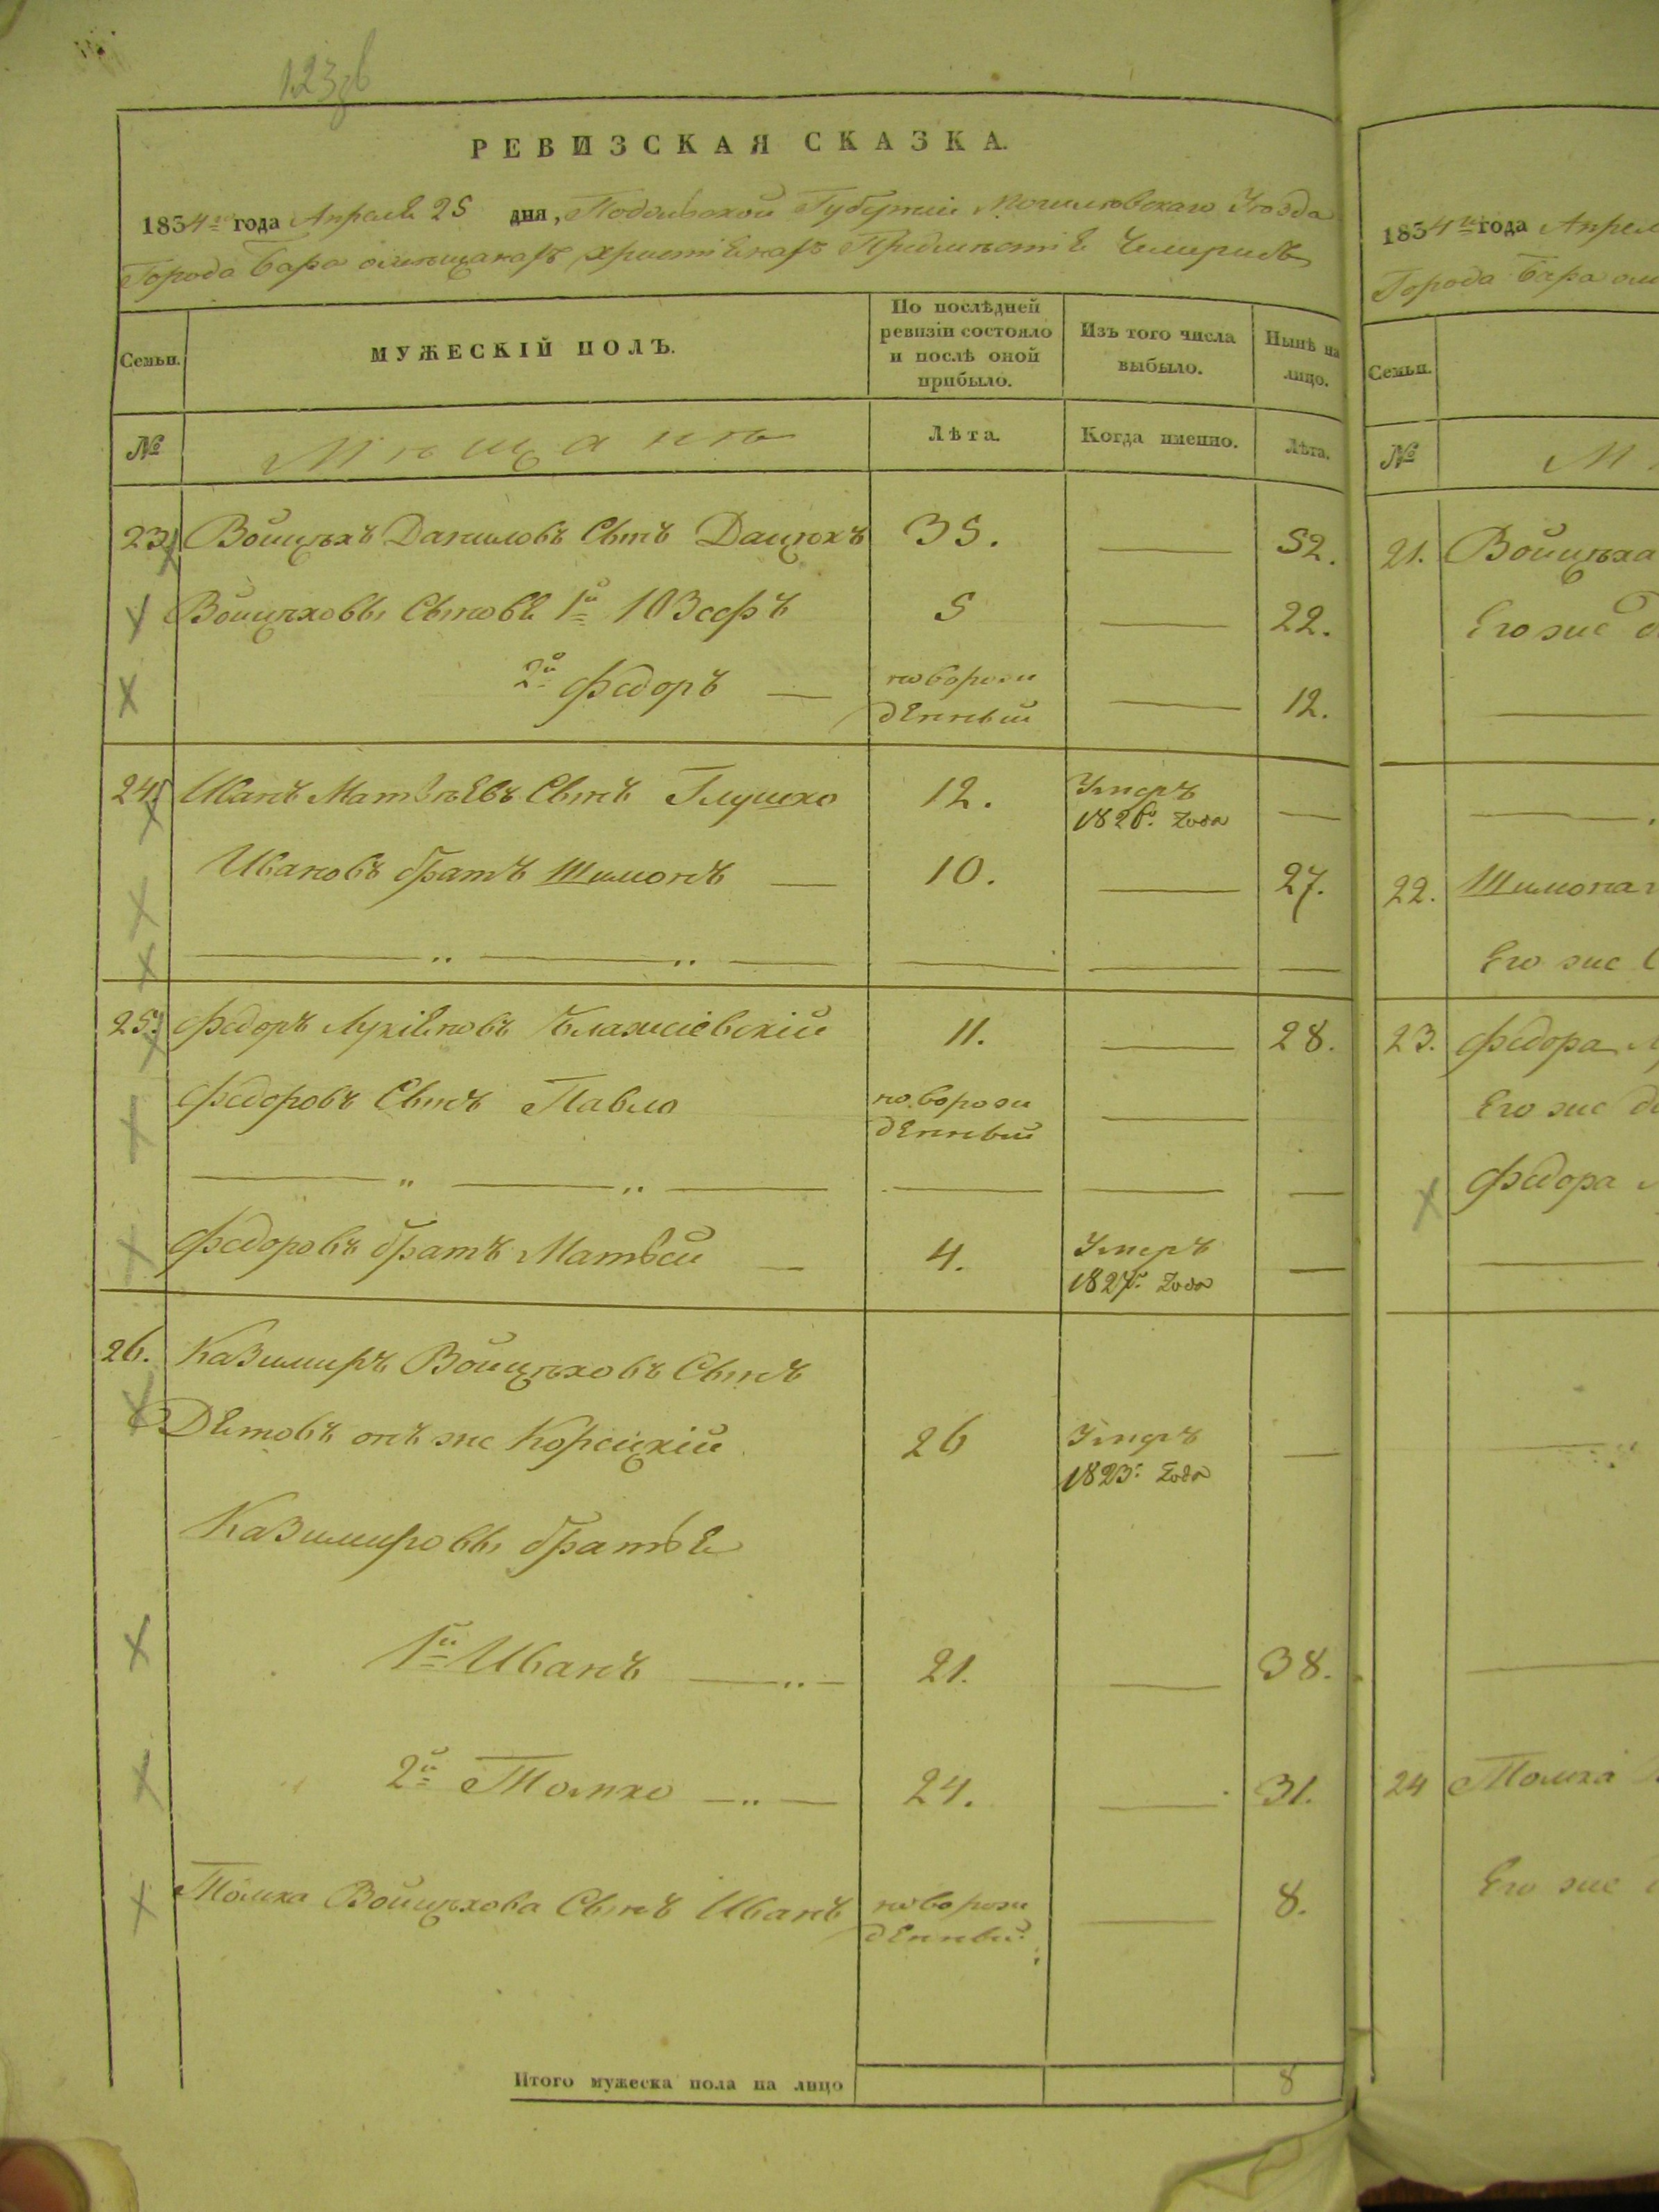 123об
РЕВИЗСКАЯ СКАЗКА.
1834го года Апреля 25 дня, Подольской Губернии Могилювскаго Уѣзда
Города Бара омѣщанахъ христіянахъ Предмѣстія Чемерисъ
Семьи.
МУЖЕСКІЙ ПОЛЪ.
По послѣдней ревизіи состояло и послѣ оной прибыло.
Изъ того числа выбыло.
Нынѣ на лицо.
№
Мѣщанѣ
Лѣта.
Когда именно.
Лѣта.
23. Войцѣхъ Даниловъ Сынъ Дацюкъ 35. 52.
Войцѣховы Сыновя 1й Юзефъ 5 22.
2й Федоръ новорожденный 12.
24. Иванъ Матвѣевъ Сынъ Глушко 12. Умеръ 1826. года
Ивановъ братъ Шимонъ 10. 27.
25. Федоръ Лукіяновъ Блажіевскій 11. 28.
Федоровъ Сынъ Павло новорожденный
Федоровъ братъ Матвей 4. Умеръ 1827. года
26. Казимиръ Войцѣховъ Сынъ
онъ же Корецкій 26 Умеръ 1823. года
Казимировы братья
1й Иванъ 21. 38.
2й Томко 24. 31.
Томка Войцѣхова Сынъ Иванъ новорожденный 8.
Итого мужеска пола на лицо 8
1834го года Апрел
Города Бара ом
Семьи.
№ М
21. Войцѣха
Его же
22. Шимона
Его же
23. Федора
Его же
Федора
24 Томка
Его же